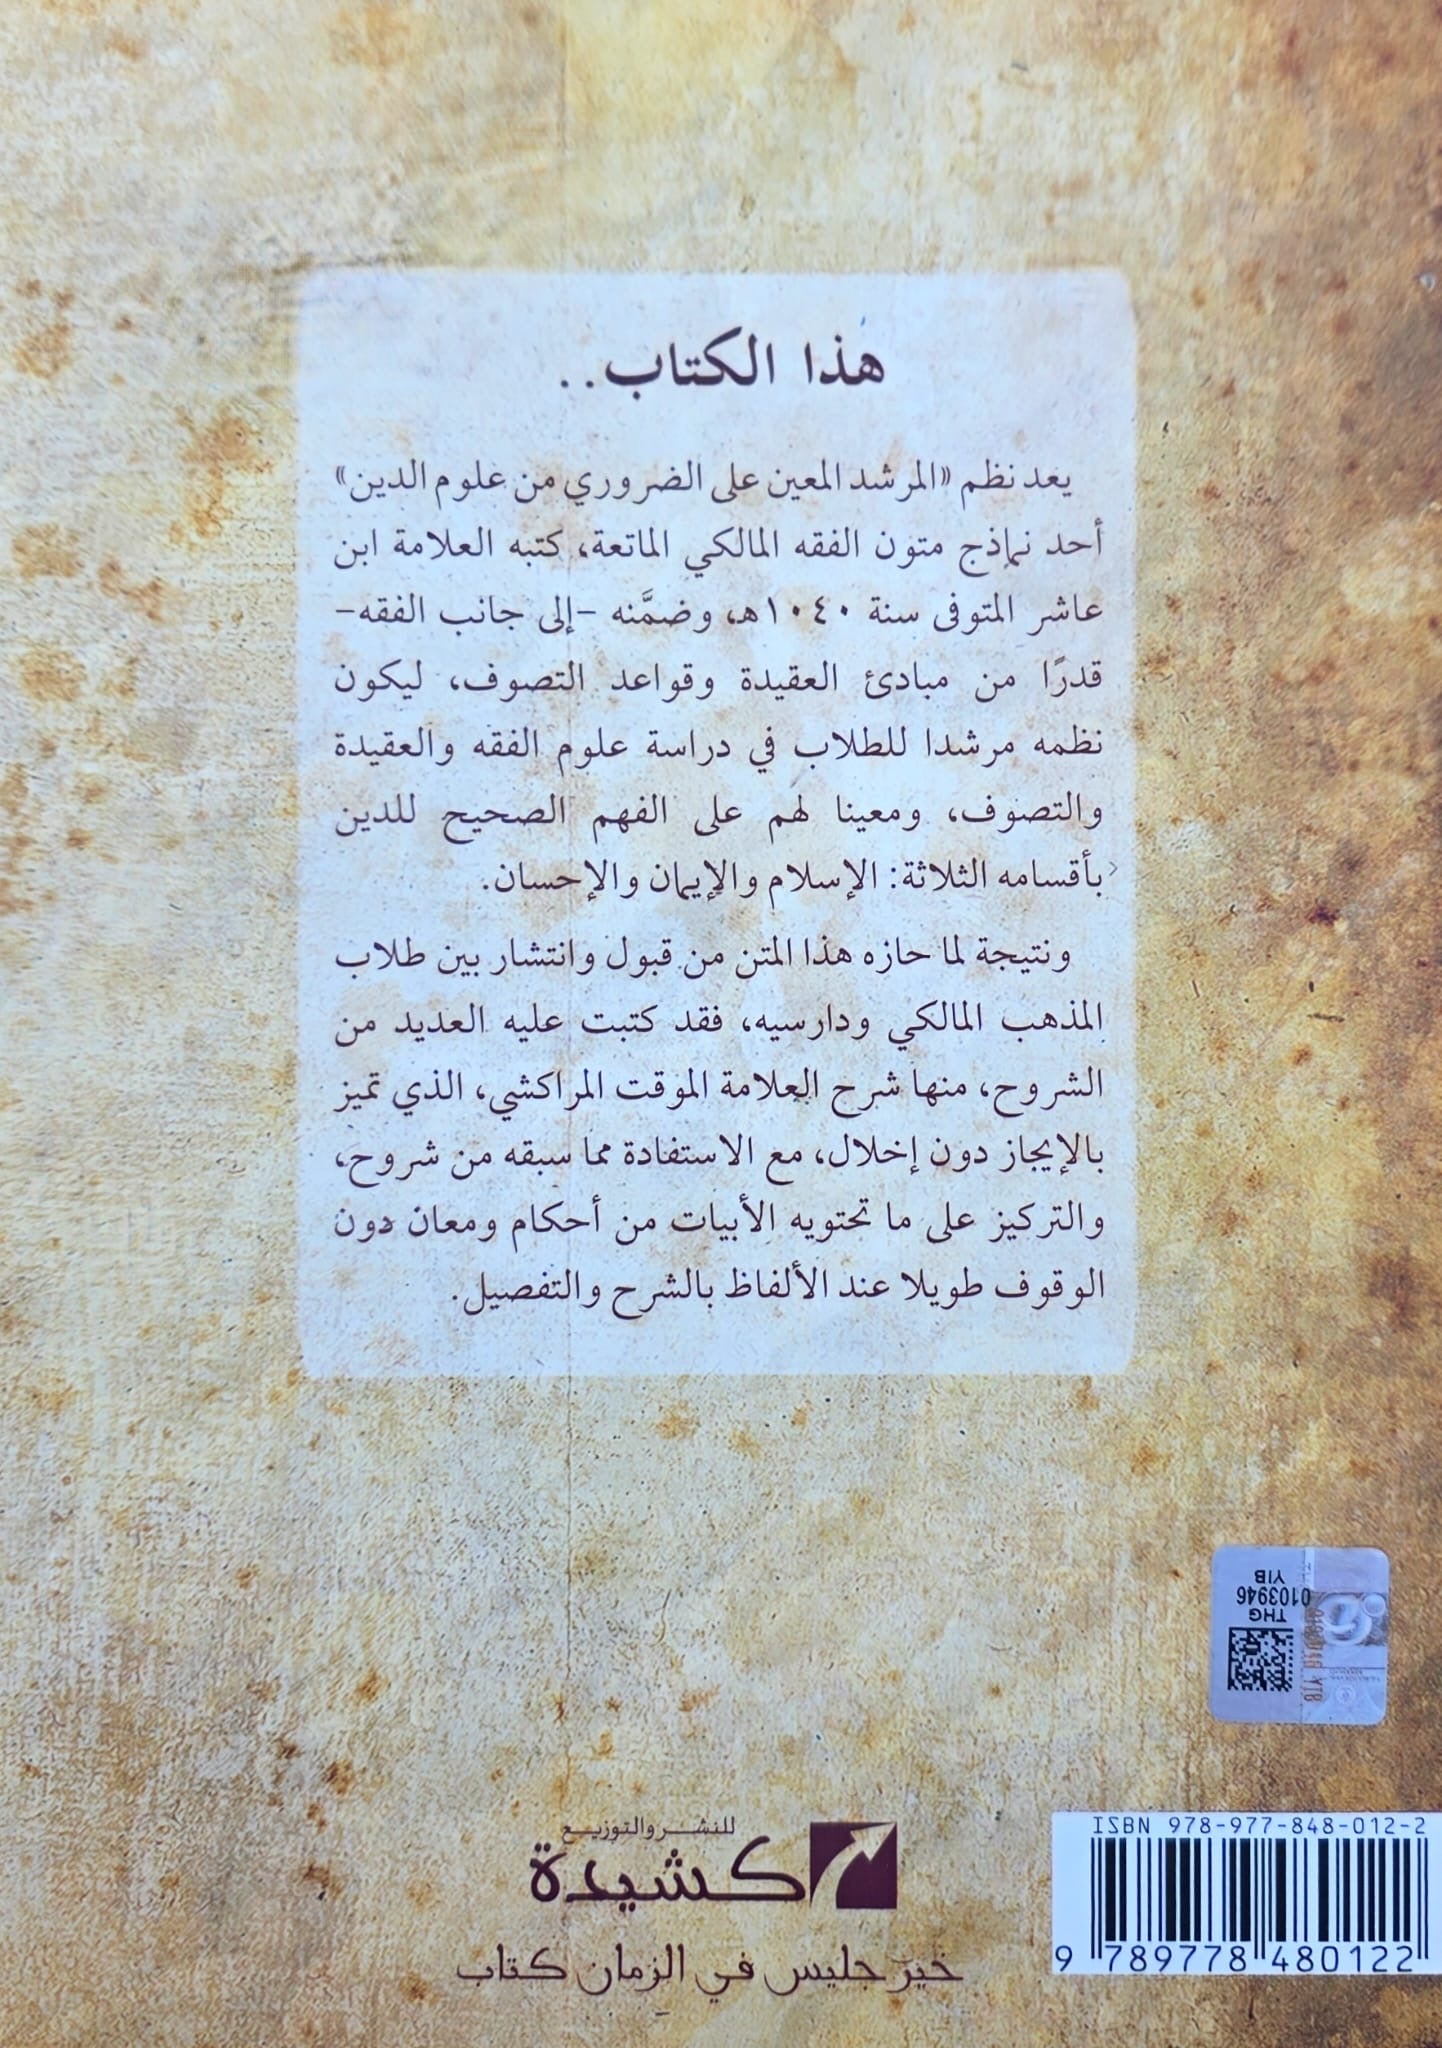 هذا الكتاب..
يعد نظم «المرشد المعين على الضروري من علوم الدين»
أحد نماذج متون الفقه المالكي الماتعة، كتبه العلامة ابن
عاشر المتوفى سنة ١٠٤٠هـ، وضمَّنه -إلى جانب الفقه-
قدرًا من مبادئ العقيدة وقواعد التصوف، ليكون
نظمه مرشدا للطلاب في دراسة علوم الفقه والعقيدة
والتصوف، ومعينا لهم على الفهم الصحيح للدين
بأقسامه الثلاثة: الإسلام والإيمان والإحسان.
ونتيجة لما حازه هذا المتن من قبول وانتشار بين طلاب
المذهب المالكي ودارسيه، فقد كتبت عليه العديد من
الشروح، منها شرح العلامة الموقت المراكشي، الذي تميز
بالإيجاز دون إخلال، مع الاستفادة مما سبقه من شروح،
والتركيز على ما تحتويه الأبيات من أحكام ومعان دون
الوقوف طويلا عند الألفاظ بالشرح والتفصيل.
THG
0103946
YIB
للنشر والتوزيع
كشيدة
خير جليس في الزمان كتاب
ISBN 978-977-848-012-2
9 789778 480122